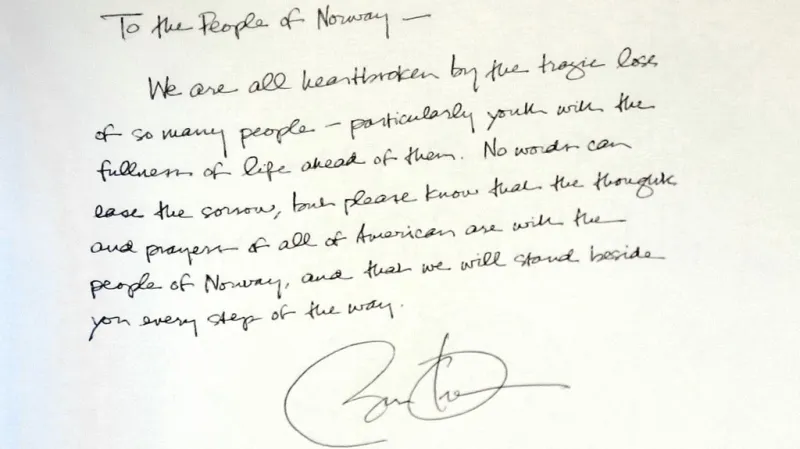 To the People of Norway —
We are all heartbroken by the tragic loss
of so many people – particularly youth with the
fullness of life ahead of them. No words can
ease the sorrow, but please know that the thoughts
and prayers of all of American are with the
people of Norway, and that we will stand beside
you every step of the way.